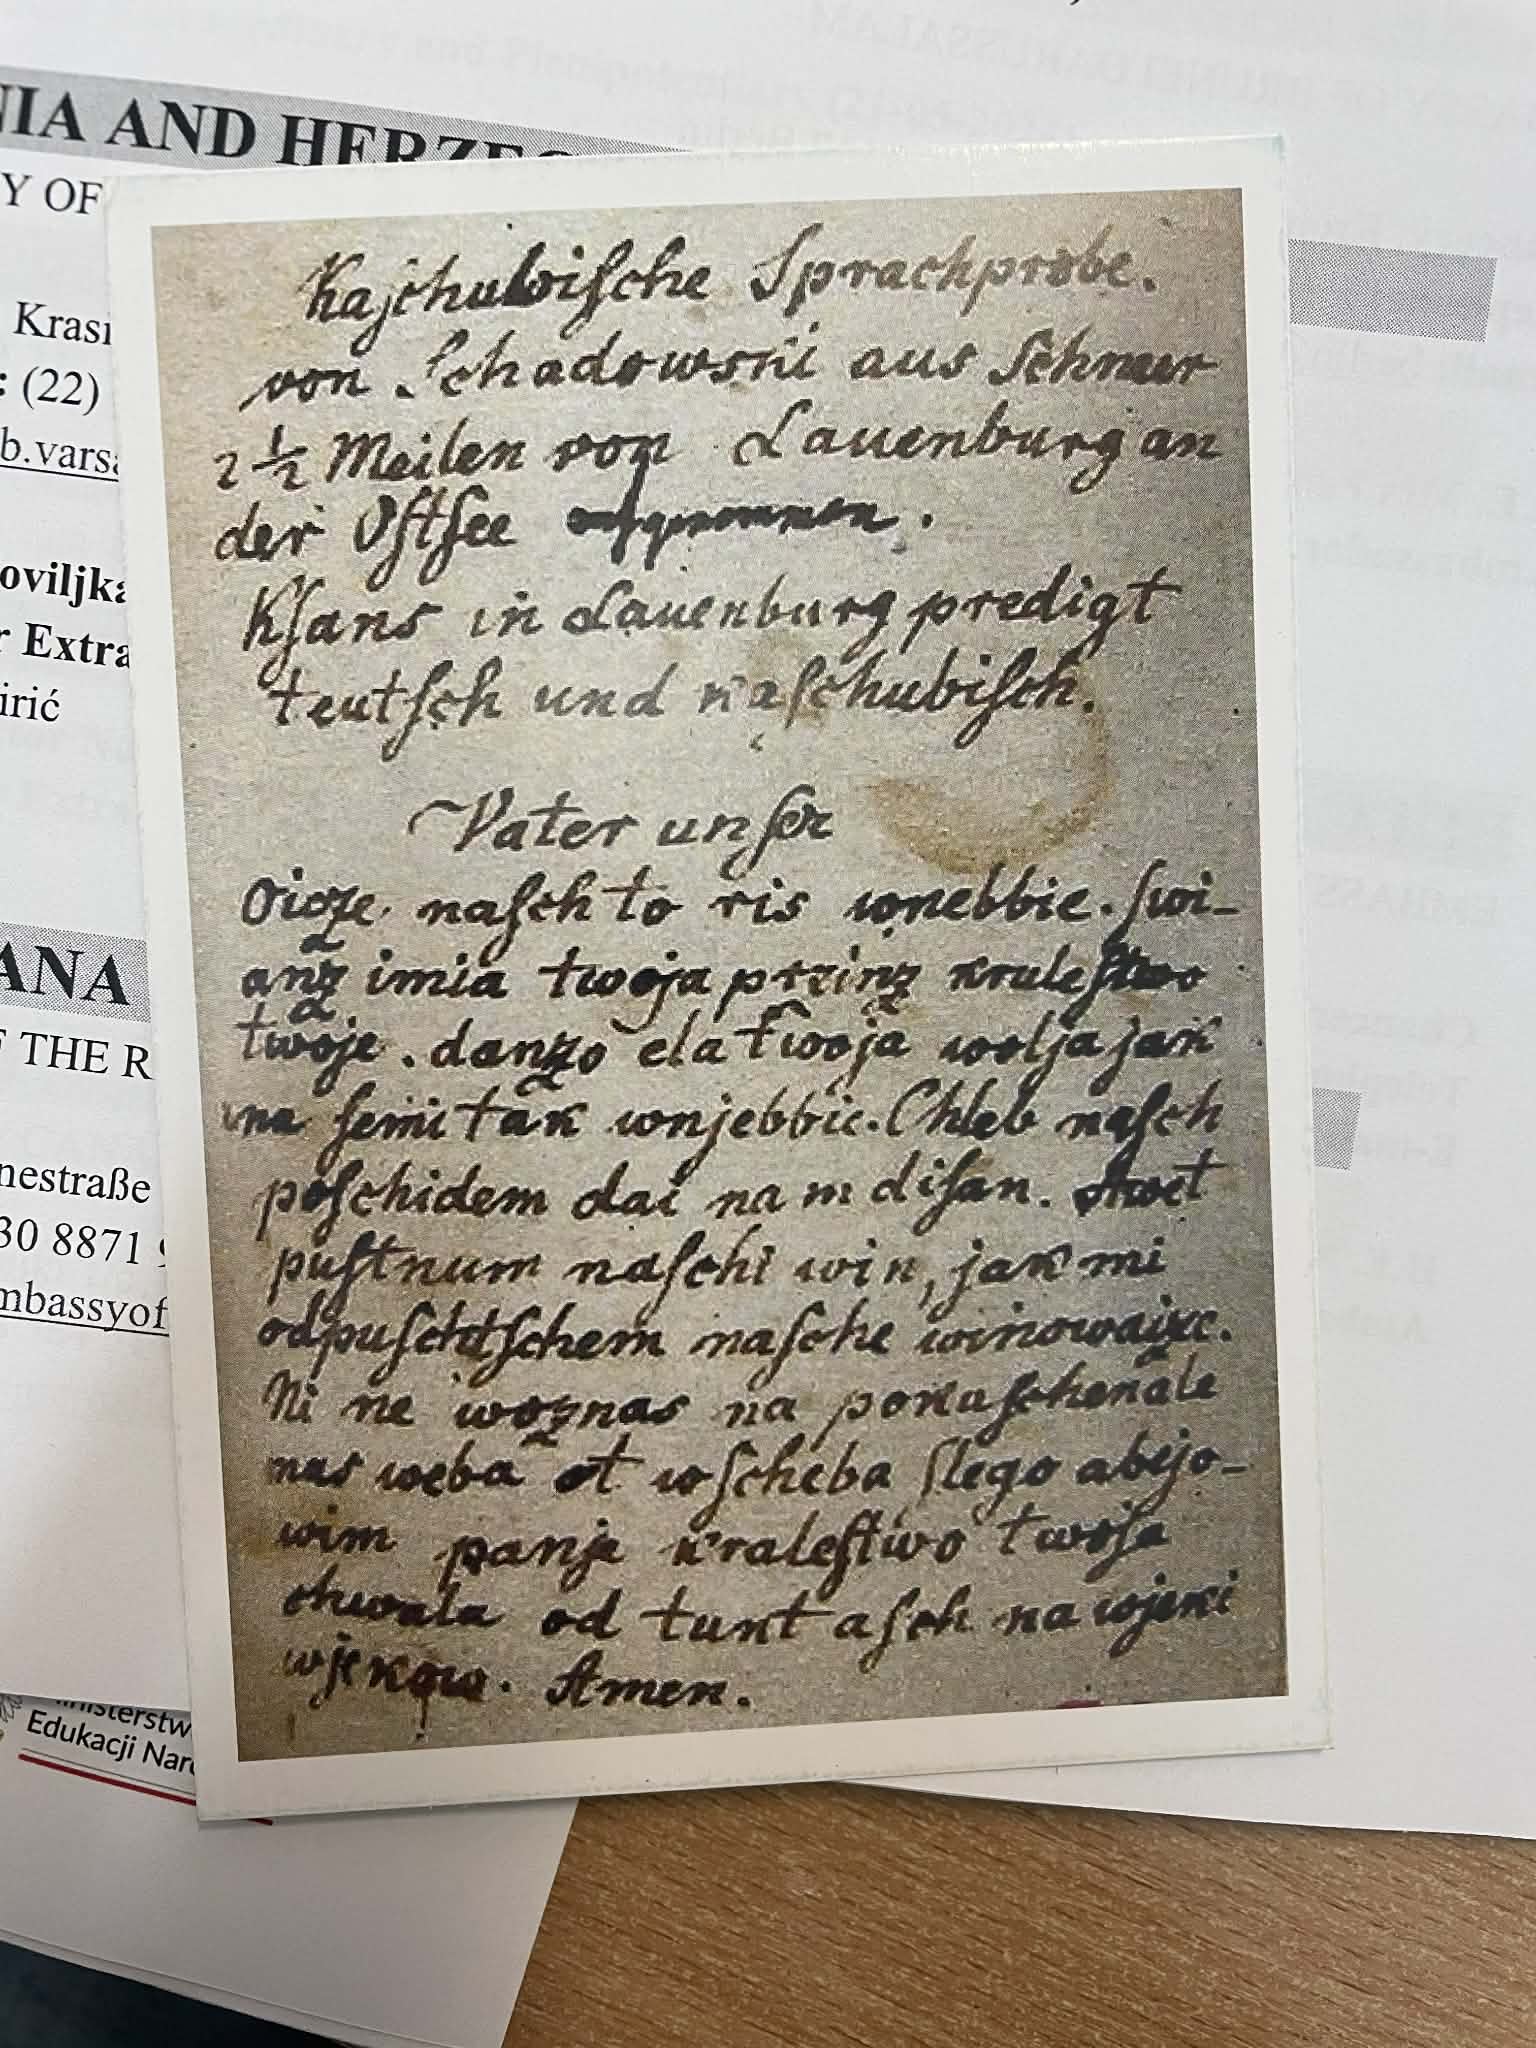 NIA AND HERZEG
Y OF
Krasi
: (22)
b.varsa
oviljka
r Extra
irić
ANA
F THE R
nestraße
30 8871 9
mbassyof
Ministerstw
Edukacji Naro
Kaſchubiſche Sprachprobe.
von Schadowski aus Schmeer
2 1/2 Meilen von Lauenburg an
der Oſtſee aufgenommen.
Kſans in Lauenburg predigt
teutſch und kaſchubiſch.
Vater unſer
Oicze naſch to ris wnebbie. ſwi-
anz imia twoja przinz kruleſtwo
twoje. danzo ela twoja wolja jak
na ſemi tak wnjebbie. Chleb naſch
poſchidem dai nam diſan. Awet
puſtnum naſchi win, jak mi
odpuſchtſchem naſche winowaize.
Ni ne woznas na pokuſchenale
nas weba ot wſcheba ſlego abejo-
wim panje kraleſtwo twoja
chwala od tunt aſch na wjeki
wjekow. Amen.